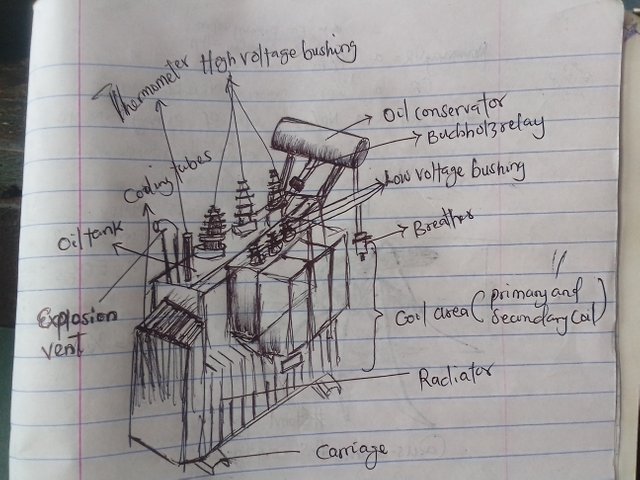 Thermometer
High voltage bushing
Oil conservator
Buchholz relay
Low voltage bushing
Cooling tubes
Oil tank
Breather
Explosion
vent
Coil area (primary and
secundary coil)
Radiator
Carriage